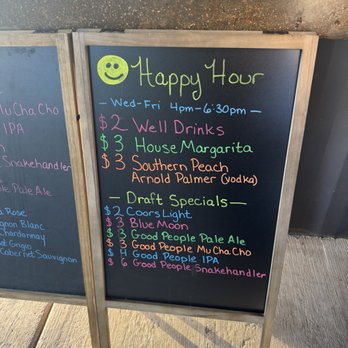 Mu Cha Cho
IPA
Snakehandler
Pale Ale
Rose
Blanc
Chardonnay
Grigio
Cabernet Sauvignon
Happy Hour
— Wed-Fri 4pm-6:30pm —
$2 Well Drinks
$3 House Margarita
$3 Southern Peach
Arnold Palmer (vodka)
— Draft Specials —
$2 Coors Light
$3 Blue Moon
$3 Good People Pale Ale
$3 Good People Mu Cha Cho
$4 Good People IPA
$6 Good People Snakehandler